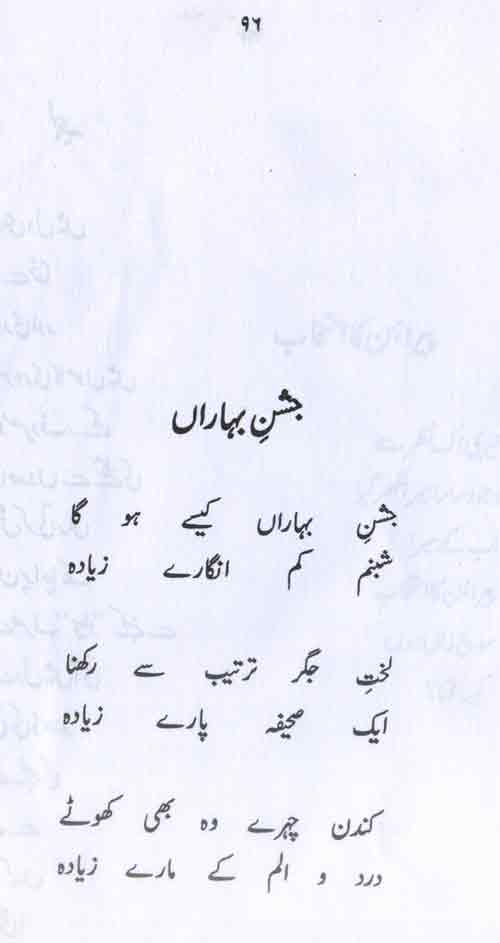 ۹۶
جشنِ بہاراں
جشنِ بہاراں کیسے ہو گا
شبنم کم انگارے زیادہ
لختِ جگر ترتیب سے رکھنا
ایک صحیفہ پارے زیادہ
کندن چہرے وہ بھی کھوٹے
درد و الم کے مارے زیادہ